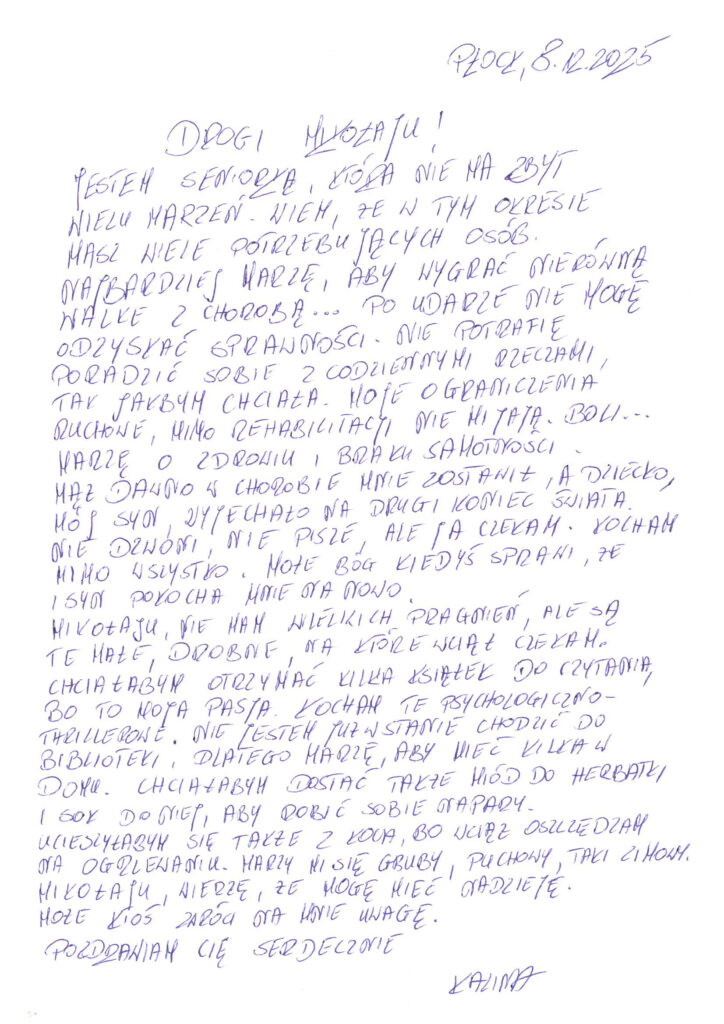 PŁOCK, 8.12.2025
DROGI MIKOŁAJU!
JESTEM SENIORKĄ, KTÓRA NIE MA ZBYT
WIELU MARZEŃ. WIEM, ŻE W TYM OKRESIE
MASZ WIELE POTRZEBUJĄCYCH OSÓB.
NAJBARDZIEJ MARZĘ, ABY WYGRAĆ NIERÓWNĄ
WALKĘ Z CHOROBĄ... PO UDARZE NIE MOGĘ
ODZYSKAĆ SPRAWNOŚCI. NIE POTRAFIĘ
PORADZIĆ SOBIE Z CODZIENNYMI RZECZAMI,
TAK JAKBYM CHCIAŁA. MOJE OGRANICZENIA
RUCHOWE, MIMO REHABILITACJI NIE MIJAJĄ. BOLI...
MARZĘ O ZDROWIU I BRAKU SAMOTNOŚCI.
MĄŻ DAWNO W CHOROBIE MNIE ZOSTAWIŁ, A DZIECKO,
MÓJ SYN, WYJECHAŁO NA DRUGI KONIEC ŚWIATA.
NIE DZWONI, NIE PISZE, ALE JA CZEKAM. KOCHAM
MIMO WSZYSTKO. MOŻE BÓG KIEDYŚ SPRAWI, ŻE
I SYN POKOCHA MNIE NA NOWO.
MIKOŁAJU, NIE MAM WIELKICH PRAGNIEŃ, ALE SĄ
TE MAŁE, DROBNE, NA KTÓRE WCIĄŻ CZEKAM.
CHCIAŁABYM OTRZYMAĆ KILKA KSIĄŻEK DO CZYTANIA,
BO TO MOJA PASJA. KOCHAM TE PSYCHOLOGICZNO-
THRILLEROWE. NIE JESTEM JUŻ W STANIE CHODZIĆ DO
BIBLIOTEKI, DLATEGO MARZĘ, ABY MIEĆ KILKA W
DOMU. CHCIAŁABYM DOSTAĆ TAKŻE MIÓD DO HERBATKI
I SOK DO NIEJ, ABY ROBIĆ SOBIE NAPARY.
UCIESZYŁABYM SIĘ TAKŻE Z KOCA, BO WCIĄŻ OSZCZĘDZAM
NA OGRZEWANIU. MARZY MI SIĘ GRUBY, PUCHOWY, TAKI ZIMOWY.
MIKOŁAJU, WIERZĘ, ŻE MOGĘ MIEĆ NADZIEJĘ.
MOŻE KTOŚ ZWRÓCI NA MNIE UWAGĘ.
POZDRAWIAM CIĘ SERDECZNIE
KALINA